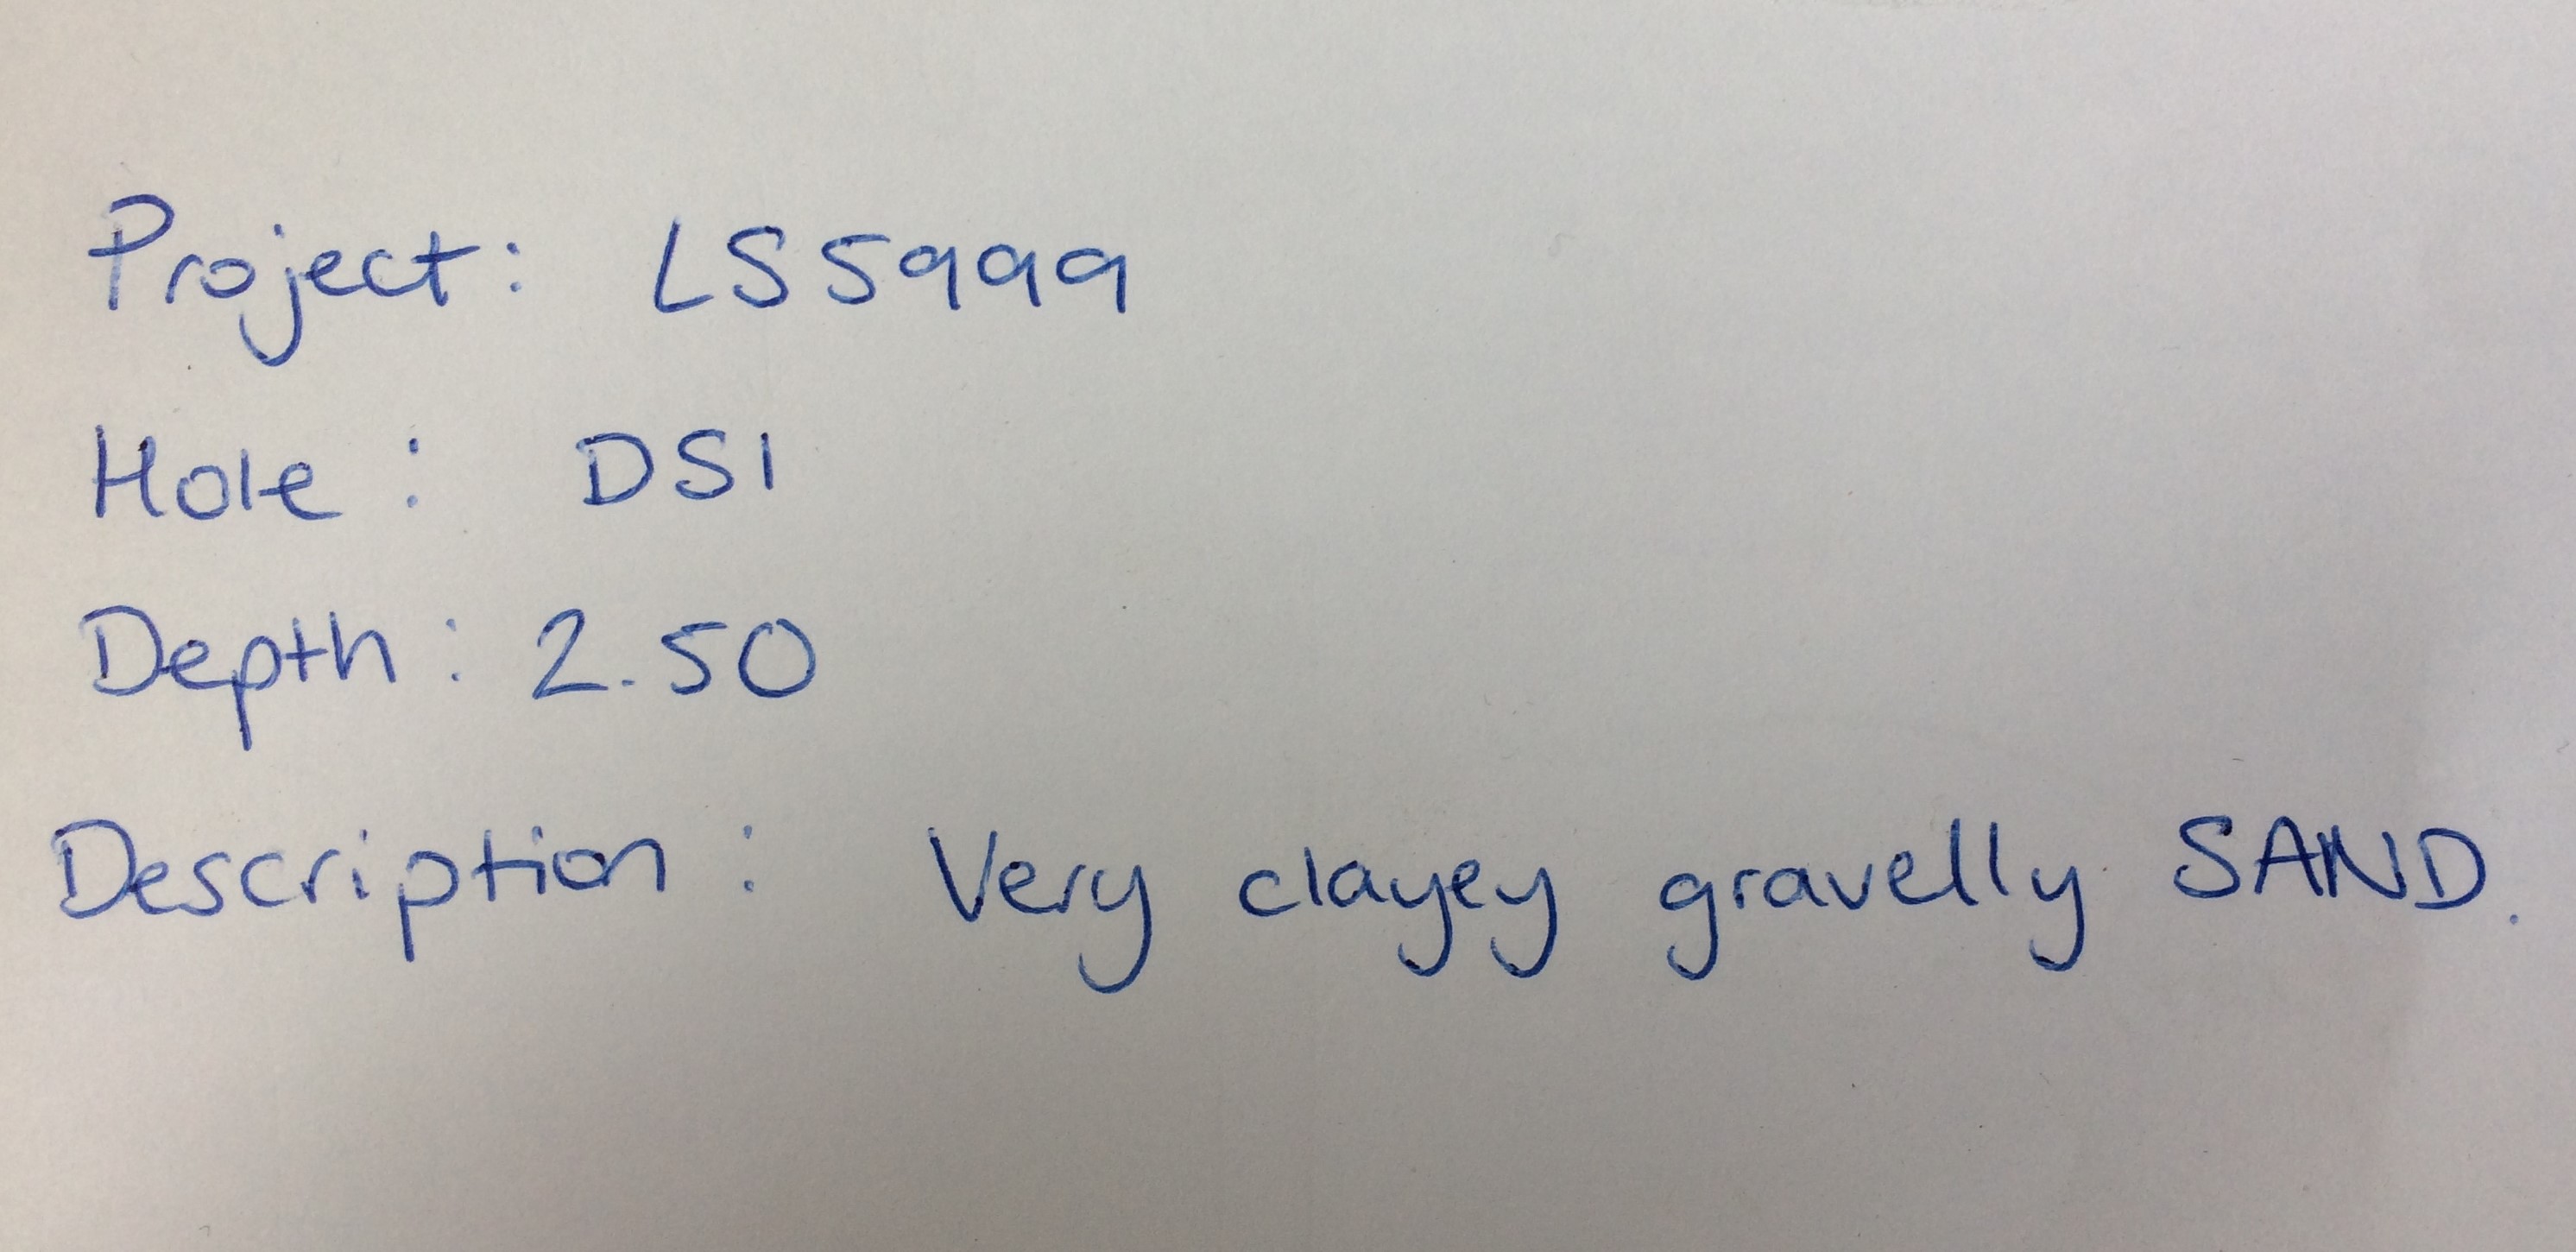 Project: LS5999
Hole: DS1
Depth: 2.50
Description: Very clayey gravelly SAND.